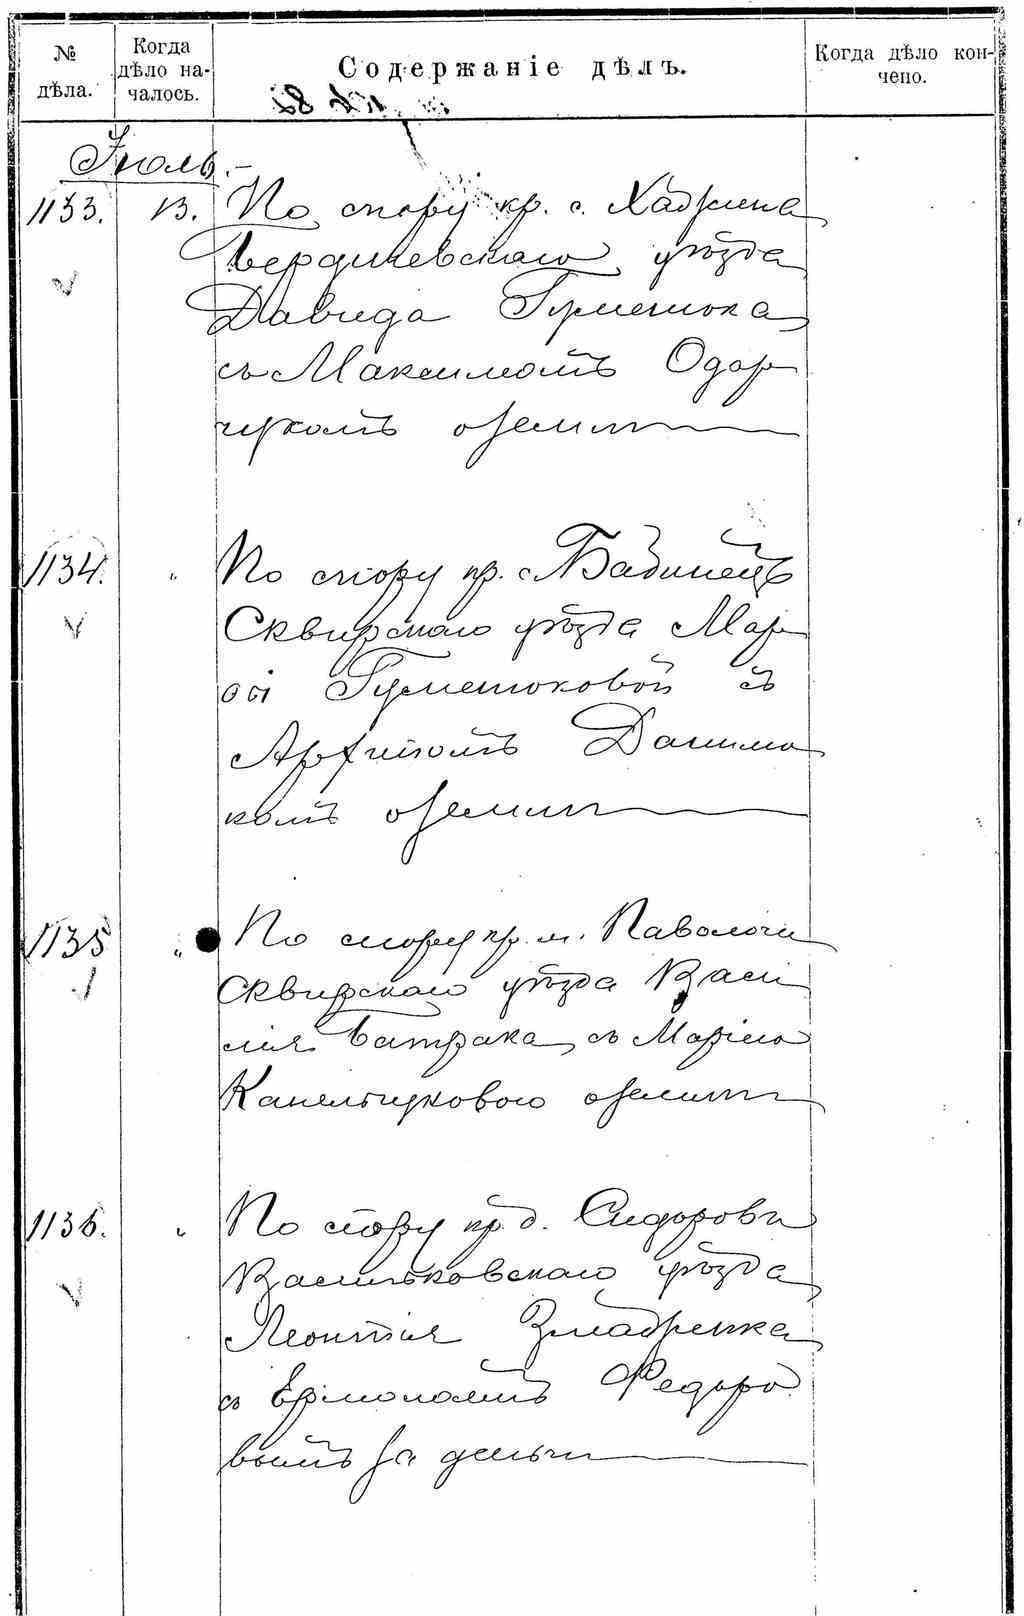 № дѣла.
Когда дѣло началось.
Содержаніе дѣлъ.
Когда дѣло кончено.
Іюль.
1133. 13. По спору кр. с.
Бердичевскаго уѣзда
Давида Гуменюка
съ Максимомъ Одар
чукомъ о земли
1134. „ По спору кр. с.
Сквирскаго уѣзда Мар
Гуменюковой съ
Данилю
комъ о земли
1135 „ По спору кр. м. Паволочи
Сквирскаго уѣзда Васи
лія Батрака съ Маріею
о земли
1136. „ По спору кр. д.
Васильковскаго уѣзда
Леонтія
съ Ермолаемъ Федоро
вымъ за деньги